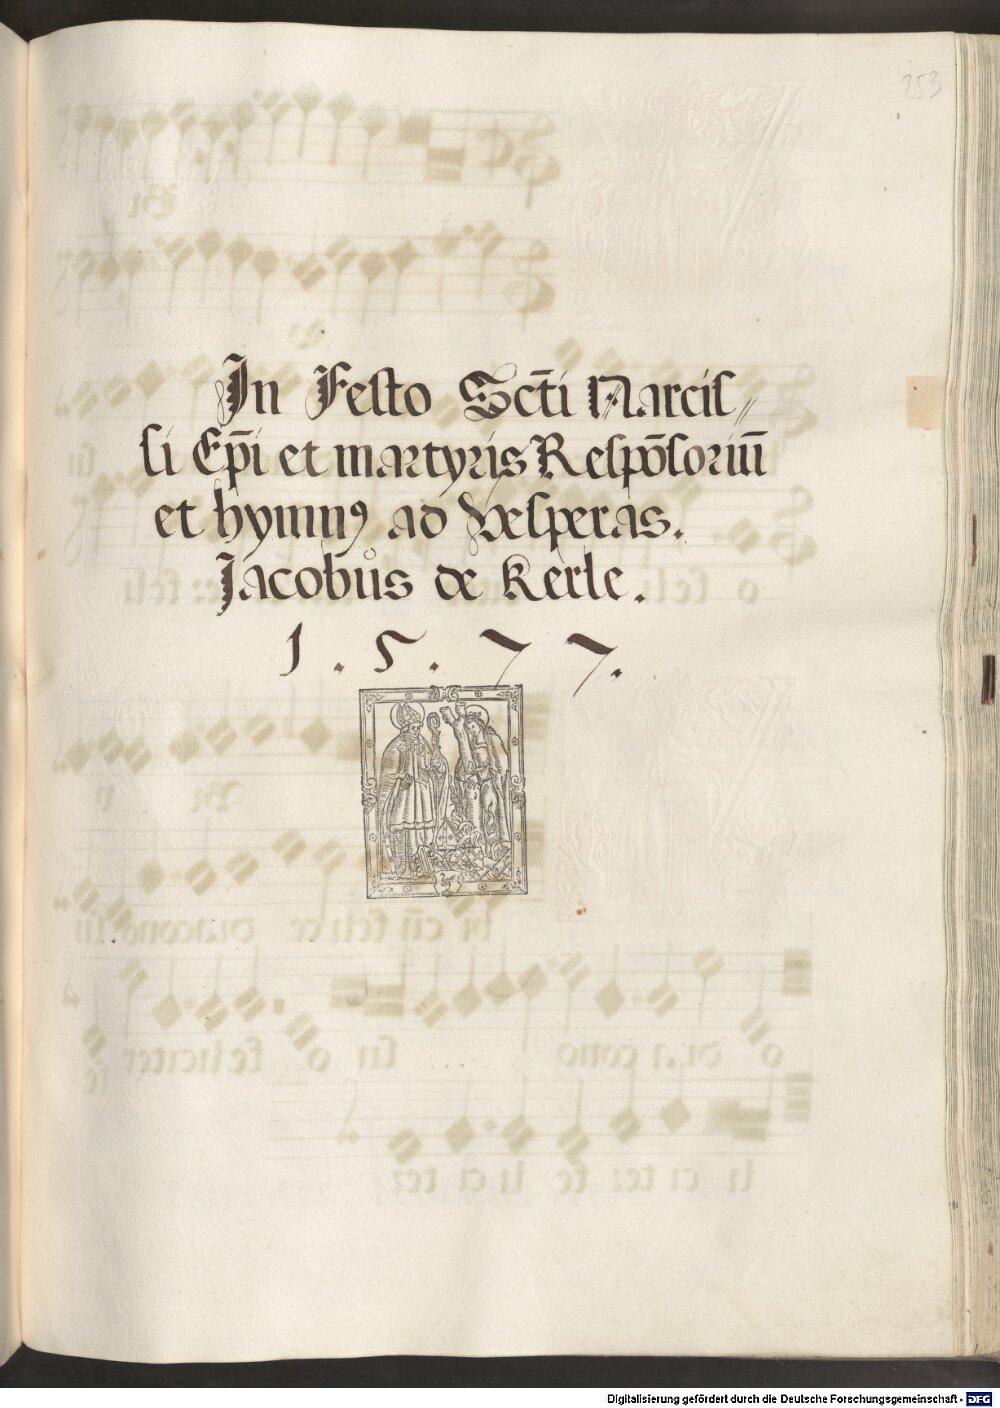 253
In Festo Sct̄i Narcis//
si Ep̄i et martyris Respōsoriū̄
et hymnꝯ ad Vesperas.
Jacobůs de Kerle.
1.5.77.
Digitalisierung gefördert durch die Deutsche Forschungsgemeinschaft - DFG